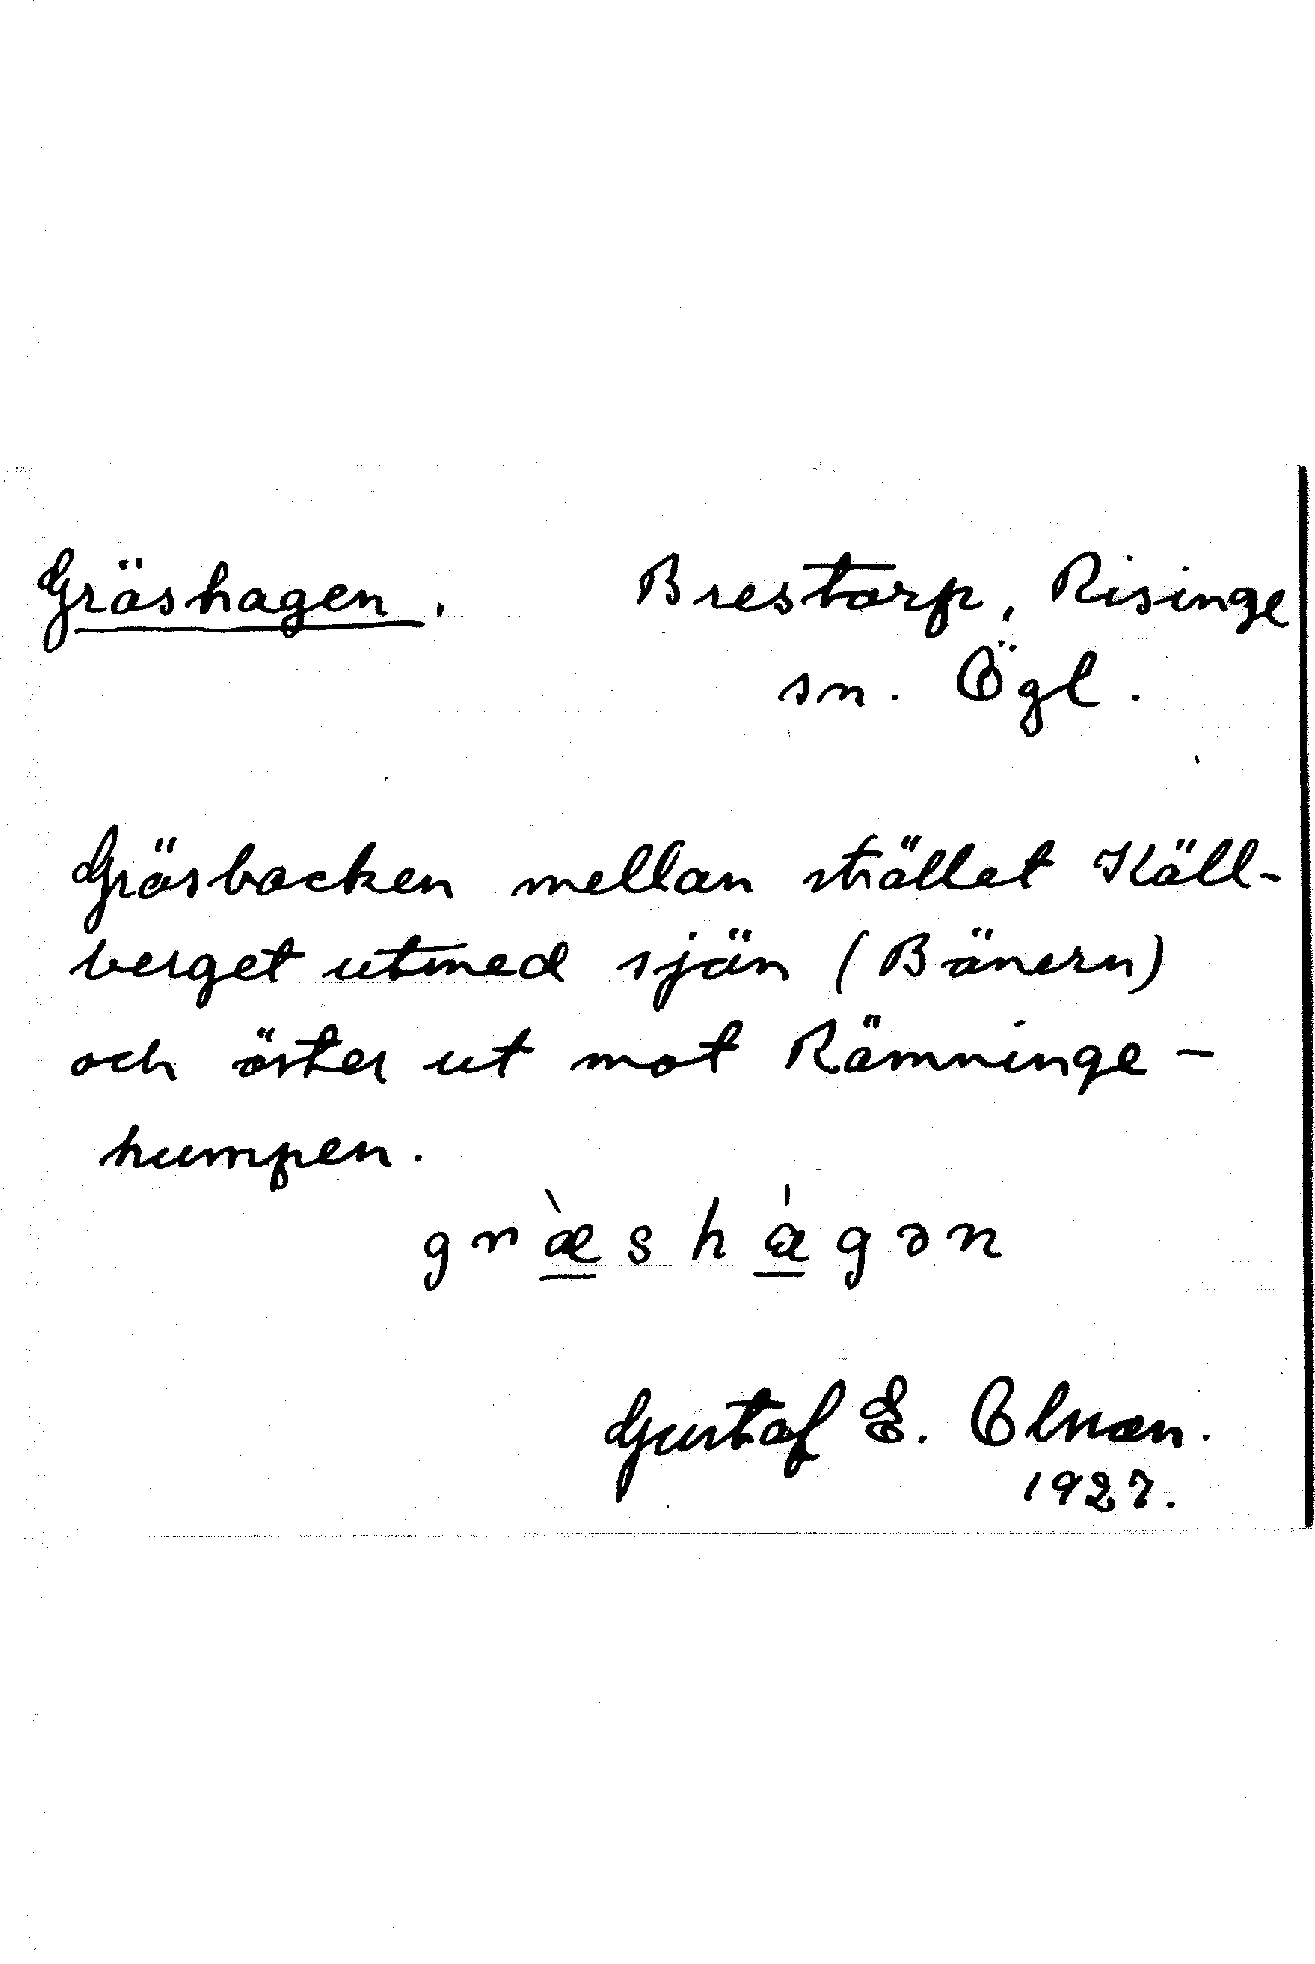 Gräshagen. Brestorp, Risinge
sn. Ögl.
Gräsbacken mellan strället Käll-
berget utmed sjän (Bänern)
och öster ut mot Rämninge-
humpen.
græ̀shágən
Gustaf E. Olson.
1927.